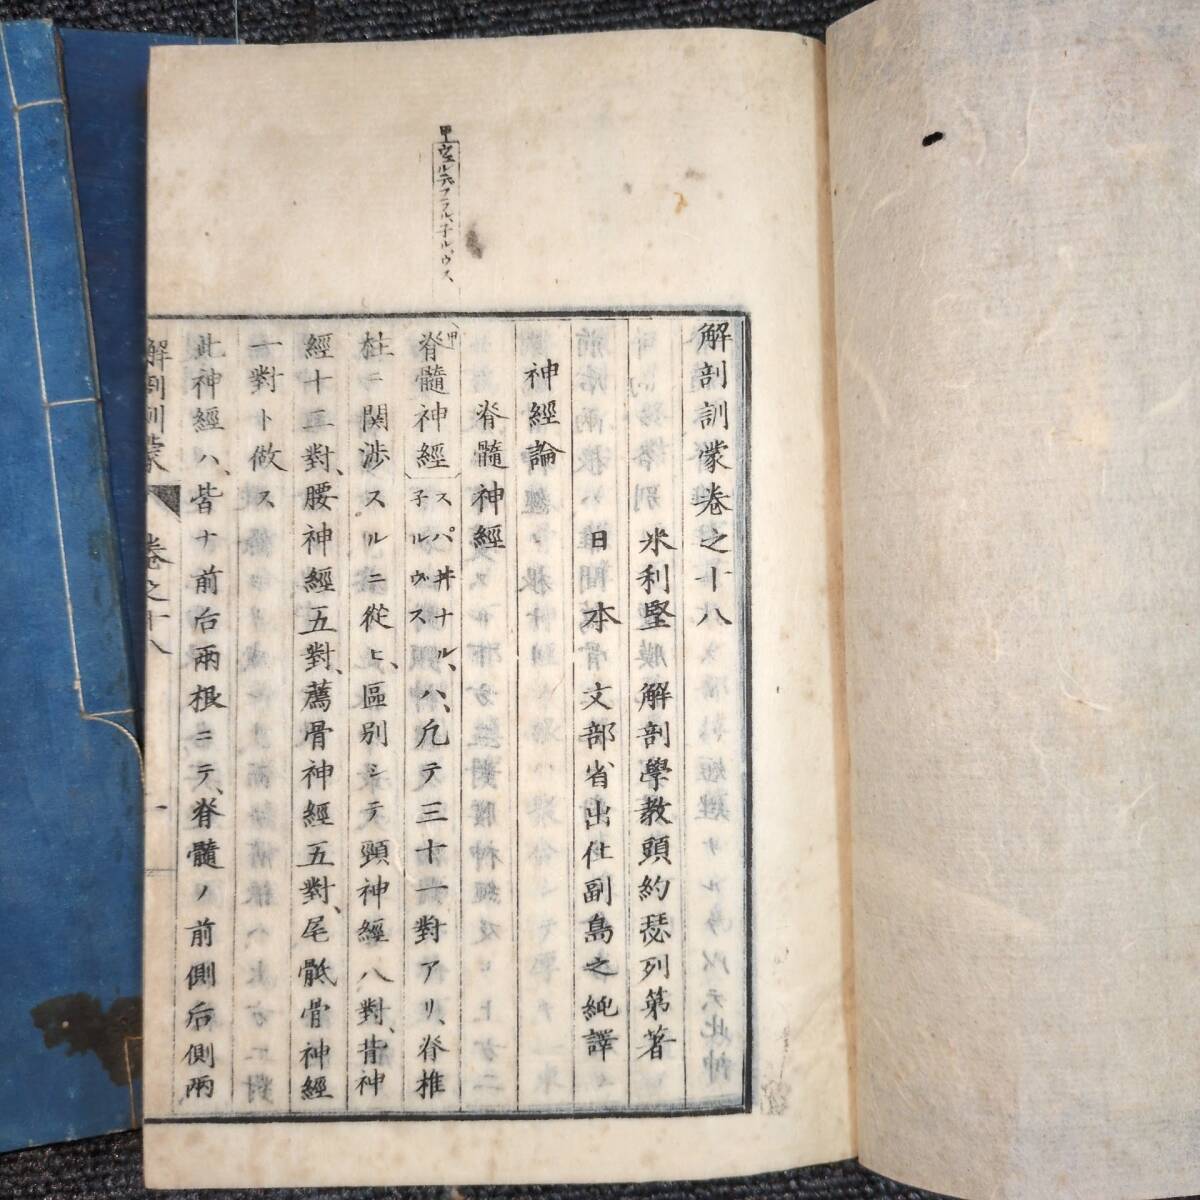 解剖訓蒙巻之十八
米利堅 膜解剖學教頭約瑟列第著
日本 文部省出仕副島之純譯
神經論
脊髓神經
脊髓神經 スパ井ナル、子ルヴス ハ、凢テ三十一對アリ、脊椎
柱ニ関渉スルニ從ヒ、區別シテ頸神經八對、背神
經十二對、腰神經五對、薦骨神經五對、尾骶骨神經
一對ト做ス
此神經ハ、皆ナ前后兩根ニテ、脊髓ノ前側后側兩
解剖訓蒙 巻之十八 一